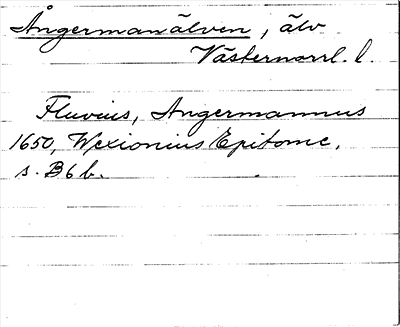 Ångermanälven, älv
Västernorrl. l.
Fluvius, Angermannus
1650, Wexionius Epitome,
s. B6b.